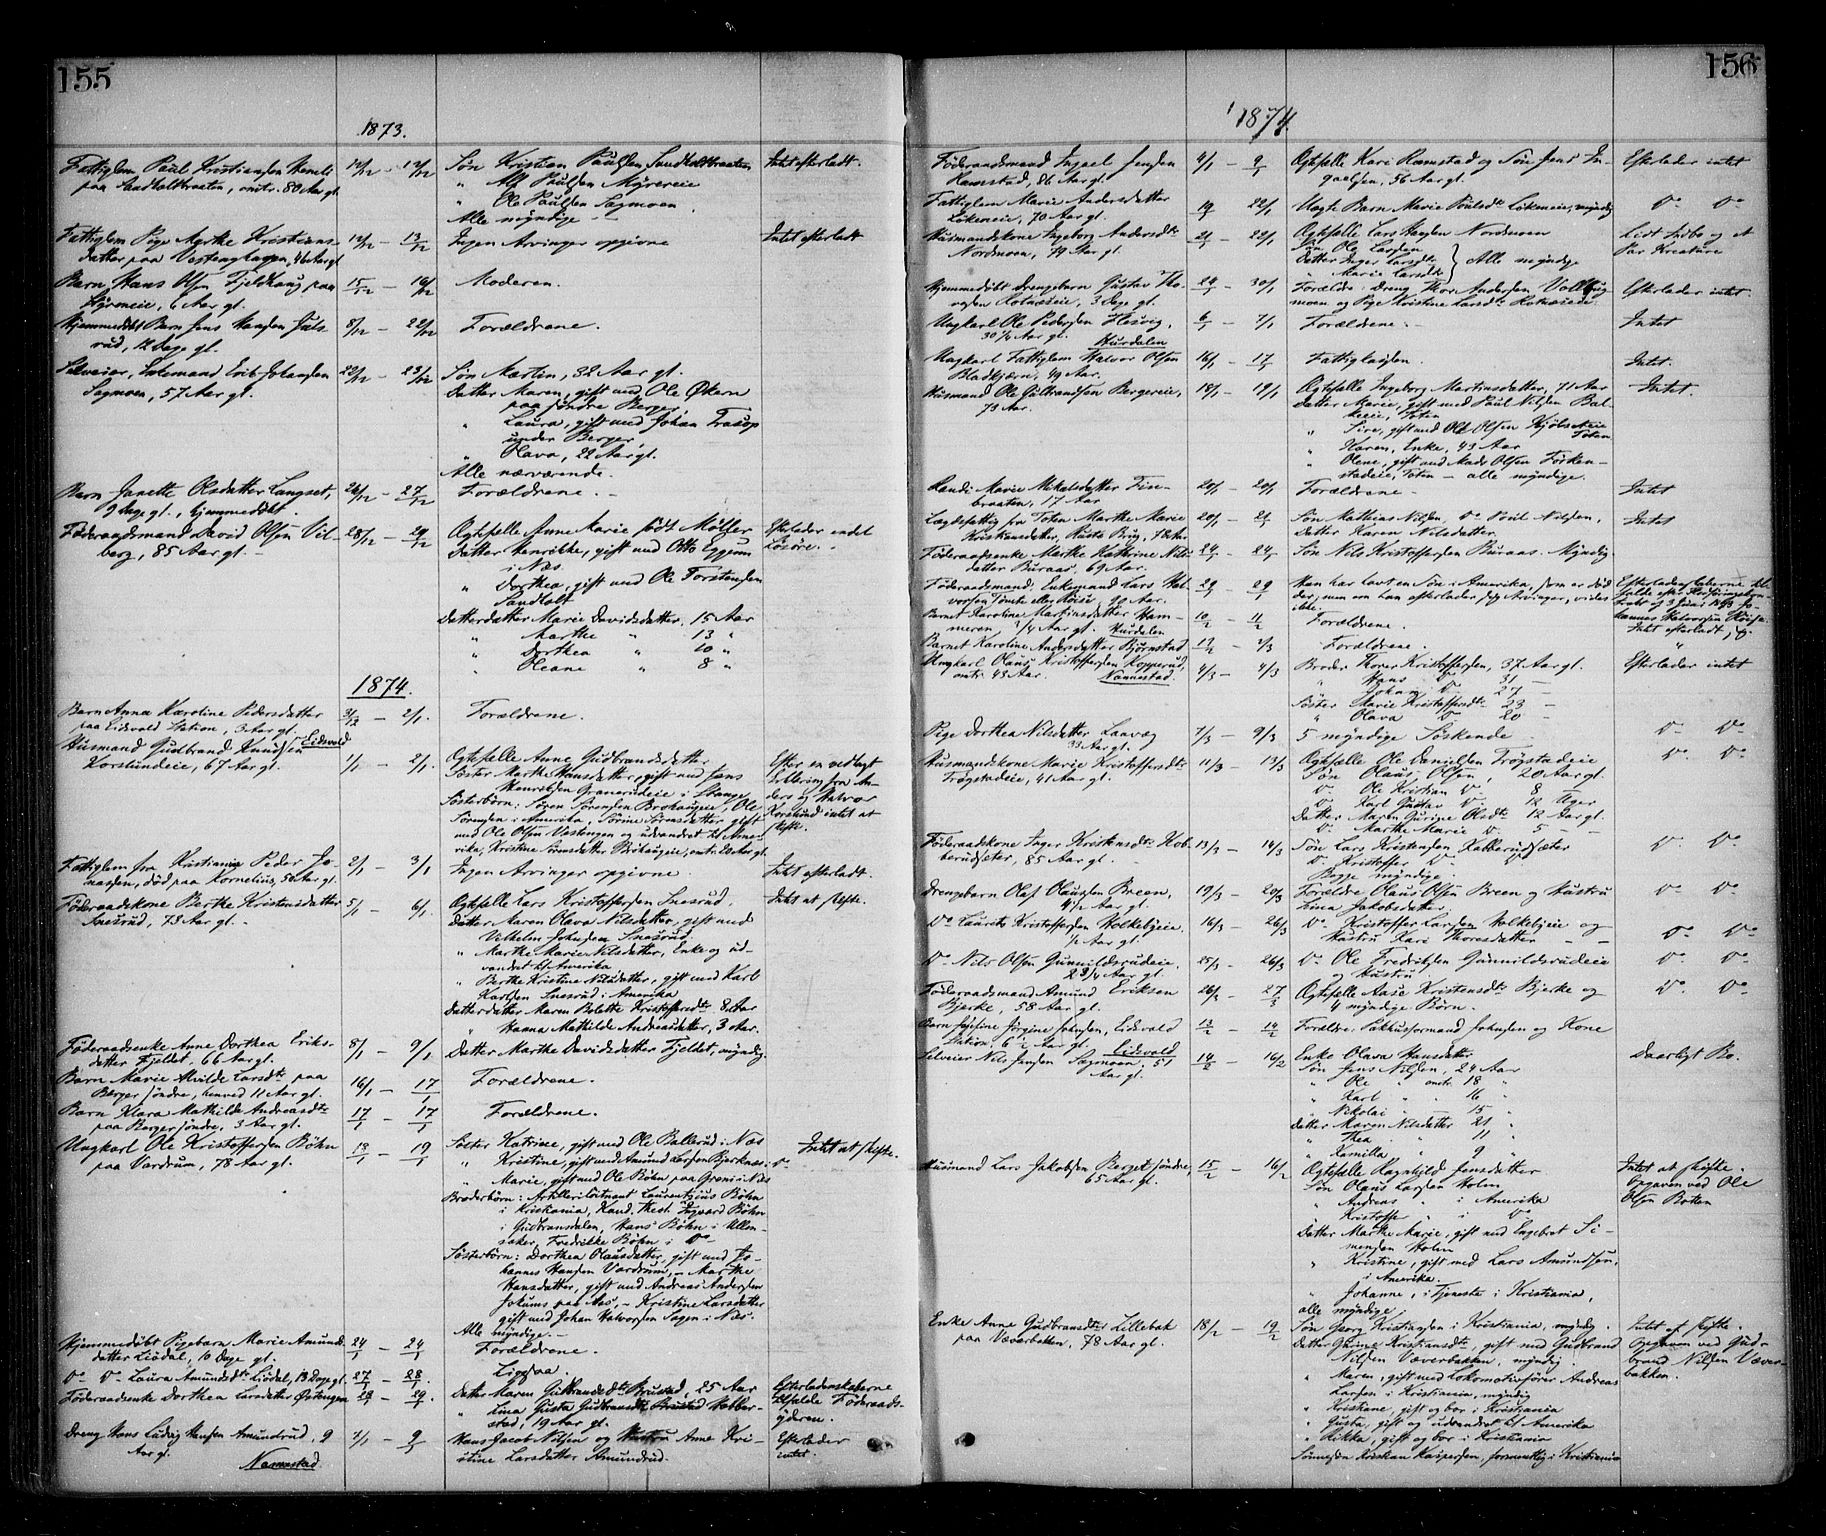 155
1873.
Fattiglem Paul Kristiansen
paa Sandholtbraaten, omtr. 80 Aar gl.
12/12 - 12/12
Søn Kristian Paulsen Sandholtbraaten
" Alf Paulsen Myrereie
" Ole Paulsen Sagmoen
Alle myndige -
Intet efterladt.
Fattiglem Pige Marthe Kristians-
datter paa Vestenghagen, 46 Aar gl
12/12 - 13/12
Ingen Arvinger opgivne
Intet efterladt
Barn Hans Olsen Fjeldhaug paa
Myrereie, 6 Aar gl.
15/12 - 16/12
Moderen.
Hjemmedøbt Barn Jens Hansen Juls-
rud, 12 Dage gl.
8/12 - 22/12
Forældrene.
Selveier, Enkemand Erik Johansen
Sagmoen, 57 Aar gl.
22/12 - 23/12
Søn Martin, 32 Aar gl.
Datter Maren, gift med Ole Økern
paa søndre Berger
" Laura, gift med Johan Trasop
under Berger,
" Olava, 22 Aar gl.
Alle nærværende.
Barn Janette Olsdatter Langset,
9 Dage gl., hjemmedøbt.
26/12 - 27/12
Forældrene. -
Føderaadsmand David Olsen Vil-
berg, 85 Aar gl. -
28/12 - 29/12
Ægtefælle Anne Marie født Møller
Datter Henrikke, gift med Otto Eggum
i Næs.
" Dorthea, gift med Ole Torstensen
Sandholt
Datterdatter Marie Davidsdatter, 15 Aar
" Marthe " 13 "
" Dorthea " 10 "
" Oleane " 8 "
Efterlader endel
Løsøre. -
1874.
Barn Anna Karoline Pedersdatter
paa Eidsvold Station, 3 Aar gl.
Eidsvold
31/12 - 2/1.
Forældrene.
Husmand Gudbrand Knudsen
Korslundeie, 67 Aar gl.
1/1 - 2/1.
Ægtefælle Anne Gudbrandsdatter
Søster Marthe Hansdatter, gift med Jens
Henriksen Granerudeie i Stange
Søsterbørn: Søren Sørensen Brohaugeie, Ole
Sørensen i Amerika, Sørine Sørensdatter gift
med Ole Olsen Vestengen og udvandret til Ame-
rika, Kristine Sørensdatter Brohaugeie, omtr. 20 Aar gl.
Efter en vedlagt
Erklæring fra An-
ders og Halvor
Korslund intet at
skifte.
Fattiglem fra Kristiania Peder Jo-
nassen, død paa Kornelius, 50 Aar gl.
2/1 - 3/1
Ingen Arvinger opgivne.
Intet efterladt.
Føderaadskone Berthe Kristensdatter
Snesrud, 73 Aar gl. -
5/1 - 6/1.
Ægtefælle Lars Kristoffersen Snesrud.
Datter Maren Olava Nilsdatter, gift med
Vilhelm Johnsen Snesrud.
" Marthe Marie Nilsdatter, Enke og ud-
vandret til Amerika
" Berthe Kristine Nilsdatter, gift med Karl
Karlsen Snesrud i Amerika
Datterdatter Maren Bolette Kristoffersdt. 8 Aar
" Hanna Mathilde Andreasdatter, 3 Aar.
Intet at skifte.
Føderaadsenke Anne Dorthea Eriks-
datter Fjeldet, 66 Aar gl.
8/1 - 9/1
Datter Marthe Davidsdatter Fjeldet, myndig.
Barn Marie Alvilde Larsdt. paa
Berger søndre, henved 11 Aar gl.
16/1 - 17/1
Forældrene.
Barn Klara Mathilde Andreasdt.
paa Berger søndre, 3 Aar gl.
17/1 - 17/1
Forældrene.
Ungkarl Ole Kristoffersen Bøhn
paa Vardrum, 78 Aar gl.
19/1 - 19/1
Søster Katrine, gift med Ole Ballerud i Næs
" Kristine, gift med Amund Larsen Bjerknæs i Do
" Marie, gift med Ole Bøhn paa Greni i Næs
Broderbørn: Artilleri Løitnant Laurentius Bøhn
i Kristiania, Kand. Theol. Ingvard Bøhn
i Gudbrandsdalen, Hans Bøhn i Ullen-
saker, Fredrikke Bøhn i Do
Søsterbørn: Dorthea Olausdatter, gift med Jo-
hannes Hansen Vardrum, - Marthe
Hansdatter, gift med Andreas Andersen
Jokums paa Aas, - Kristine Larsdatter
gift med Johan Halvorsen Sagen i Næs.
Alle myndige. -
Intet at skifte.
Hjemmedøbt Pigebarn Marie Amunds-
datter Liødal, 10 Dage gl.
24/1 - 24/1
Forældrene.
Do Do Laura Amundsdt. Liødal, 13 Dage gl.
27/1 - 28/1.
Ligesaa
Føderaadsenke Dorthea Larsdatter Østengen
28/1 - 29/1.
Datter Maren Gulbrandsdt. Brustad, 25 Aar
" Lina Gusta Gulbrandsdt. Brustad Habber-
stad, 19 Aar gl.
Efterladenskaberne
tilfaldt Føderaads-
yderen.
Dreng Hans Ludvig Hansen Amundrud, 9
Aar gl.
Nannestad
7/1 - 9/1
Hans Jacob Nilsen og Hustru Anne Kri-
stine Larsdatter Amundrud.
Efterlader
intet.
156
1874.
Føderaadsmand Ingael Jensen
Ramstad, 86 Aar gl.
4/1 - 9/1
Ægtefælle Kari Ramstad og Søn Jens In-
gaelsen, 56 Aar gl.
Efterlader intet
Fattiglem Marie Andersdatter
Løkeneie, 70 Aar gl.
19/1 - 22/1
Uægte Barn Marie Poulsdt. Løkeneie, myndig
Do Do
Husmandskone Ingeborg Andersdt.
Nordmoen, 79 Aar gl.
21/1 - 22/1
Ægtefælle Lars Hansen Nordmoen
Søn Ole Larsen
Datter Inger Larsdt.
" Marie Larsdt.
Alle myndige
Lidt Indbo og et
Par Kreature
Hjemmedøbt Drengebarn Gustav Tho-
resen Rotnæseie, 3 Dage gl.
29/1 - 30/1
Forældre: Dreng Thor Andersen Vollaug-
moen og Pige Kristine Larsdt. Rotnæseie
Efterlader intet.
Ungkarl Ole Pedersen Hesvig,
30 1/2 Aar gl. Hurdalen
6/1 - 7/1
Forældrene. -
Intet
Ungkarl Fattiglem Halvor Olsen
Bladkjærn, 49 Aar.
16/1 - 17/1
Fattigkassen.
Intet.
Husmand Ole Gulbrandsen Bergereie,
73 Aar.
18/1 - 19/1
Ægtefælle Ingeborg Martinsdatter, 71 Aar
Datter Marie, gift med Paul Nilsen Bal-
keeie, Toten
" Sire, gift med Ole Olsen Kjølseteie
Toten
" Karen, Enke, 43 Aar
" Olene, gift med Mads Olsen Førken-
stadeie, Toten - alle myndige.
Intet.
Randi Marie Mikalsdatter Fin-
braaten, 17 Aar
20/1 - 20/1
Forældrene -
Intet
Lægdsfattig fra Toten Marthe Marie
Kristiansdatter, Rustad Brug, 78 Aar
20/1 - 21/1
Søn Mathias Nilsen, Do Poul Nilsen,
Datter Karen Nilsdatter.
Intet
Føderaadsenke Marthe Kathrine Nils-
datter Buraas, 69 Aar.
24/1 - 24/1
Søn Nils Kristoffersen Buraas. Myndig.
Føderaadsmand, Enkemand Lars Hal-
vorsen Tømte eller Røise, 90 Aar.
29/1 - 29/1
Man har havt en Søn i Amerika, som er død
der, men om han efterlader sig Arvinger, vides
ikke.
Efterladenskaberne til-
faldt efter
3 Juni 1873 Jo-
hannes Halvorsen Røise.
Intet efterladt,
Barnet Karoline Martinsdatter Ham-
meren 1/4 Aar gl. Hurdalen
10/2 - 11/2
Forældrene.
Barnet Karoline Andersdatter Bjørnstad
12/2 - 2/3
Forældrene. -
"
Ungkarl Olaus Kristoffersen Kopperud,
omtr. 43 Aar. Nannestad.
4/3 - 4/3
Broder Thorer Kristoffersen, 37 Aar gl.
" Hans Do 31 -
" Johan Do 27 -
Søster Marie Kristoffersdt. 23 -
" Olava Do 20 -
Efterlader intet
Pige Dorthea Nilsdatter Laavæg
33 Aar gl.
7/3 - 9/3
5 myndige Søskende -
Do Do
Husmandskone Marie Kristoffersdt.
Trøgstadeie, 41 Aar gl.
11/3 - 13/3
Ægtefælle Ole Danielsen Trøgstadeie
Søn Olaus Olsen, 20 Aar gl.
Do Ole Kristian Do 8 -
Do Karl Gustav Do 12 Uger
Datter Maren Gurine Olsdt. 12 Aar gl.
Do Marthe Marie Do 5 - -
Do Do
Føderaadskone Inger Kristensdt. Kob-
berudsæter, 85 Aar gl. -
13/3 - 14/3
Søn Lars Kristensen Kobberudsæter
Do Kristoffer Do Do
Begge myndige.
Do Do
Drengebarn Olaf Olaussen Breen,
4 1/2 Aar gl.
19/3 - 20/3
Forældre Olaus Olsen Breen og Hustru
Lina Jakobsdatter.
Do Do
Do Laurits Kristoffersen Holkebyeie,
1/2 Aar gl.
16/3 - 26/3
Do Kristoffer Larsen Holkebyeie og
Hustru Kari Thoresdatter - -
Do Do
Do Nils Olsen Gunnildsrudeie,
2 3/4 Aar gl.
25/3 - 26/3
Do Ole Fredriksen Gunnildsrudeie
og Hustru.
Do Do
Føderaadsmand Amund Eriksen
Bjerke, 58 Aar gl.
26/2 - 27/2
Ægtefælle Aase Kristensdt. Bjerke og
4 myndige Børn.
Do Do
Barn Josefine Jørgine Johnsen, Eidsvold
Station, 6 1/2 Aar gl. Eidsvold
13/2 - 14/2
Forældre: Pakhusformand Johnsen og Kone
Selveier Nils Jensen Sagmoen, 51
Aar gl.
14/2 - 16/2
Enke Olava Hansdatter
Søn Jens Nilsen, 24 Aar
" Ole " omtr. 18 "
" Karl " " 16 "
" Nikolai " 15 "
Datter Maren Nilsdatter 21 "
" Thea " 11 "
" Kamilla " 9 "
Daarligt Bo.
Husmand Lars Jakobsen Berger søndre,
65 Aar gl.
15/2 - 16/2
Ægtefælle Ragnhild Jensdatter
Søn Olaus Larsen Holm
" Andreas " i Amerika
" Kristoffer " i Do
Datter Marthe Marie, gift med Engebret Si-
mensen Holm
" Kristine, gift med Lars Amundsen,
i Amerika.
" Johanne, i Tjeneste i Kristiania,
alle myndige
Intet at skifte.
Opgaven ved Ole
Olsen Botten
Enke Anne Gudbrandsdtr. Lillebak
paa Væverbakken, 78 Aar gl.
18/2 - 19/2
Søn Georg Kristiansen i Kristiania, myndig.
Datter Grine Kristiansdt., gift med Gudbrand
Nilsen Væverbakken, myndig.
" Maren, gift med Lokomotivfører Andreas
Larsen i Kristiania, myndig
" Kristiane, gift og bor i Kristiania
" Gusta, gift og udvandret til Amerika
" Rikka, gift og bor i Kristiania
Sønnesøn Kristian Kaspersen, formentlig i Kristiania
Intet at skifte.
Opgaven ved Gud-
brand Nilsen Væver-
bakken.